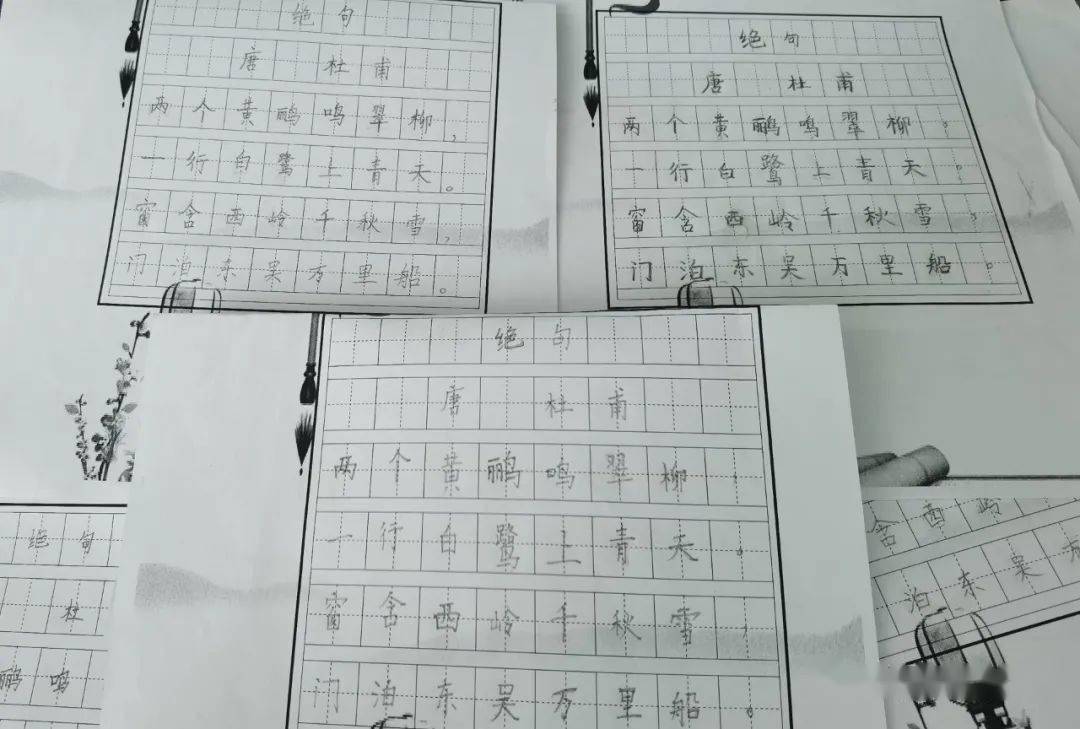 绝句
唐 杜甫
两个黄鹂鸣翠柳，
一行白鹭上青天。
窗含西岭千秋雪，
门泊东吴万里船。
绝句
唐 杜甫
两个黄鹂鸣翠柳，
一行白鹭上青天。
窗含西岭千秋雪，
门泊东吴万里船。
绝句
唐 杜甫
两个黄鹂鸣翠柳，
一行白鹭上青天。
窗含西岭千秋雪，
门泊东吴万里船。
绝句
杜
鹂鸣
含西岭
泊东吴万